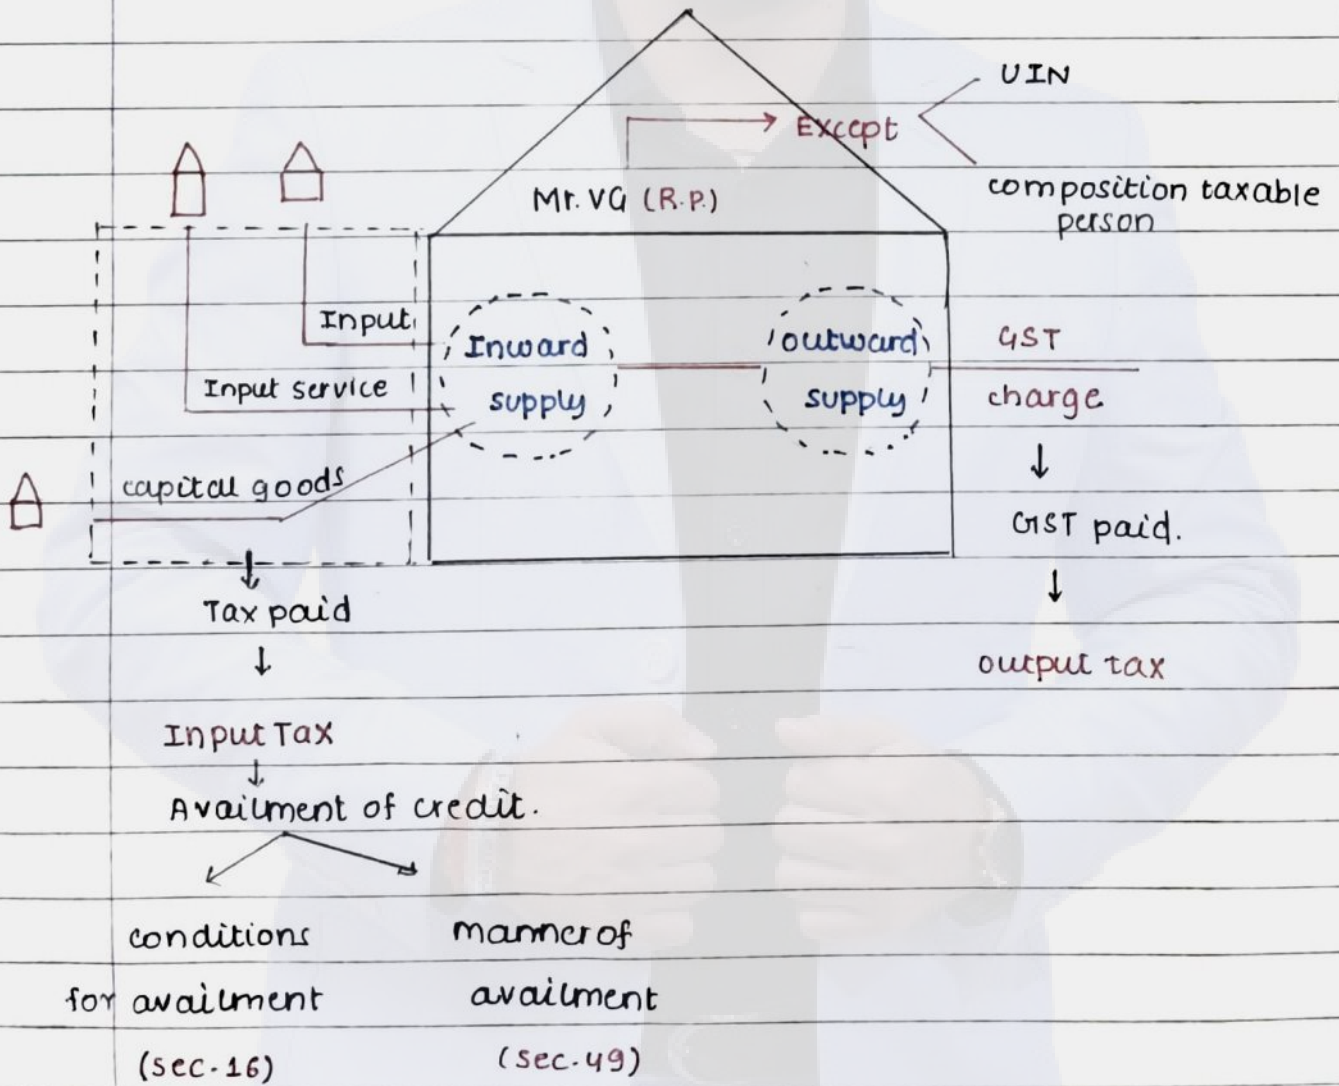 UIN
Except
composition taxable
person
Mr. VG (R.P.)
Input
Input service
capital goods
Inward
supply
outward
supply
GST
charge
GST paid.
output tax
Tax paid
Input Tax
Availment of credit.
conditions
for availment
(sec.16)
manner of
availment
(sec.49)